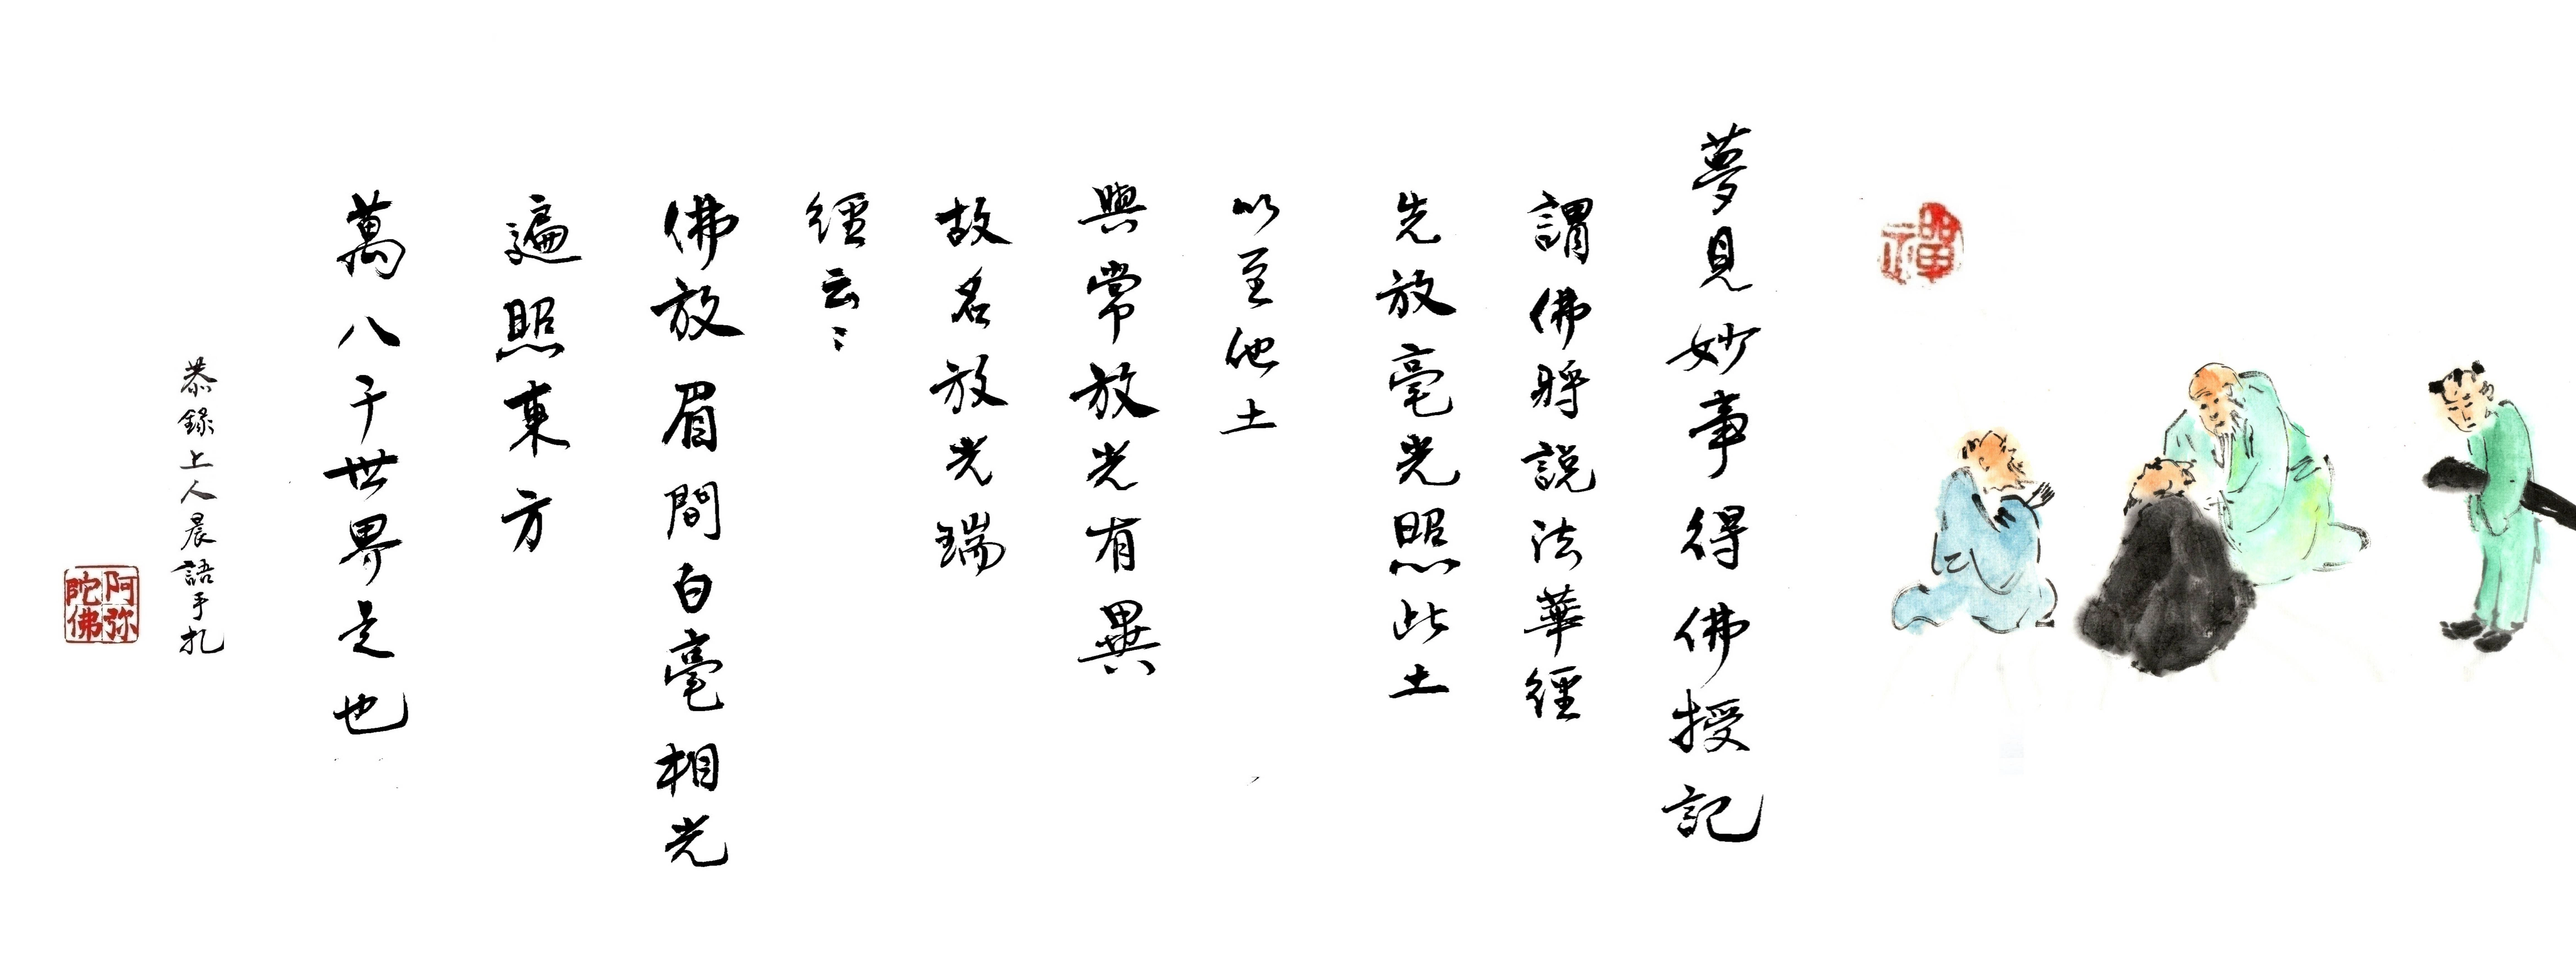 禪
夢見妙事得佛授記
謂佛將說法華經
先放毫光照此土
以至他土
與常放光有異
故名放光瑞
經云〻
佛放眉間白毫相光
遍照東方
萬八千世界是也
恭錄上人晨語手札
阿弥陀佛